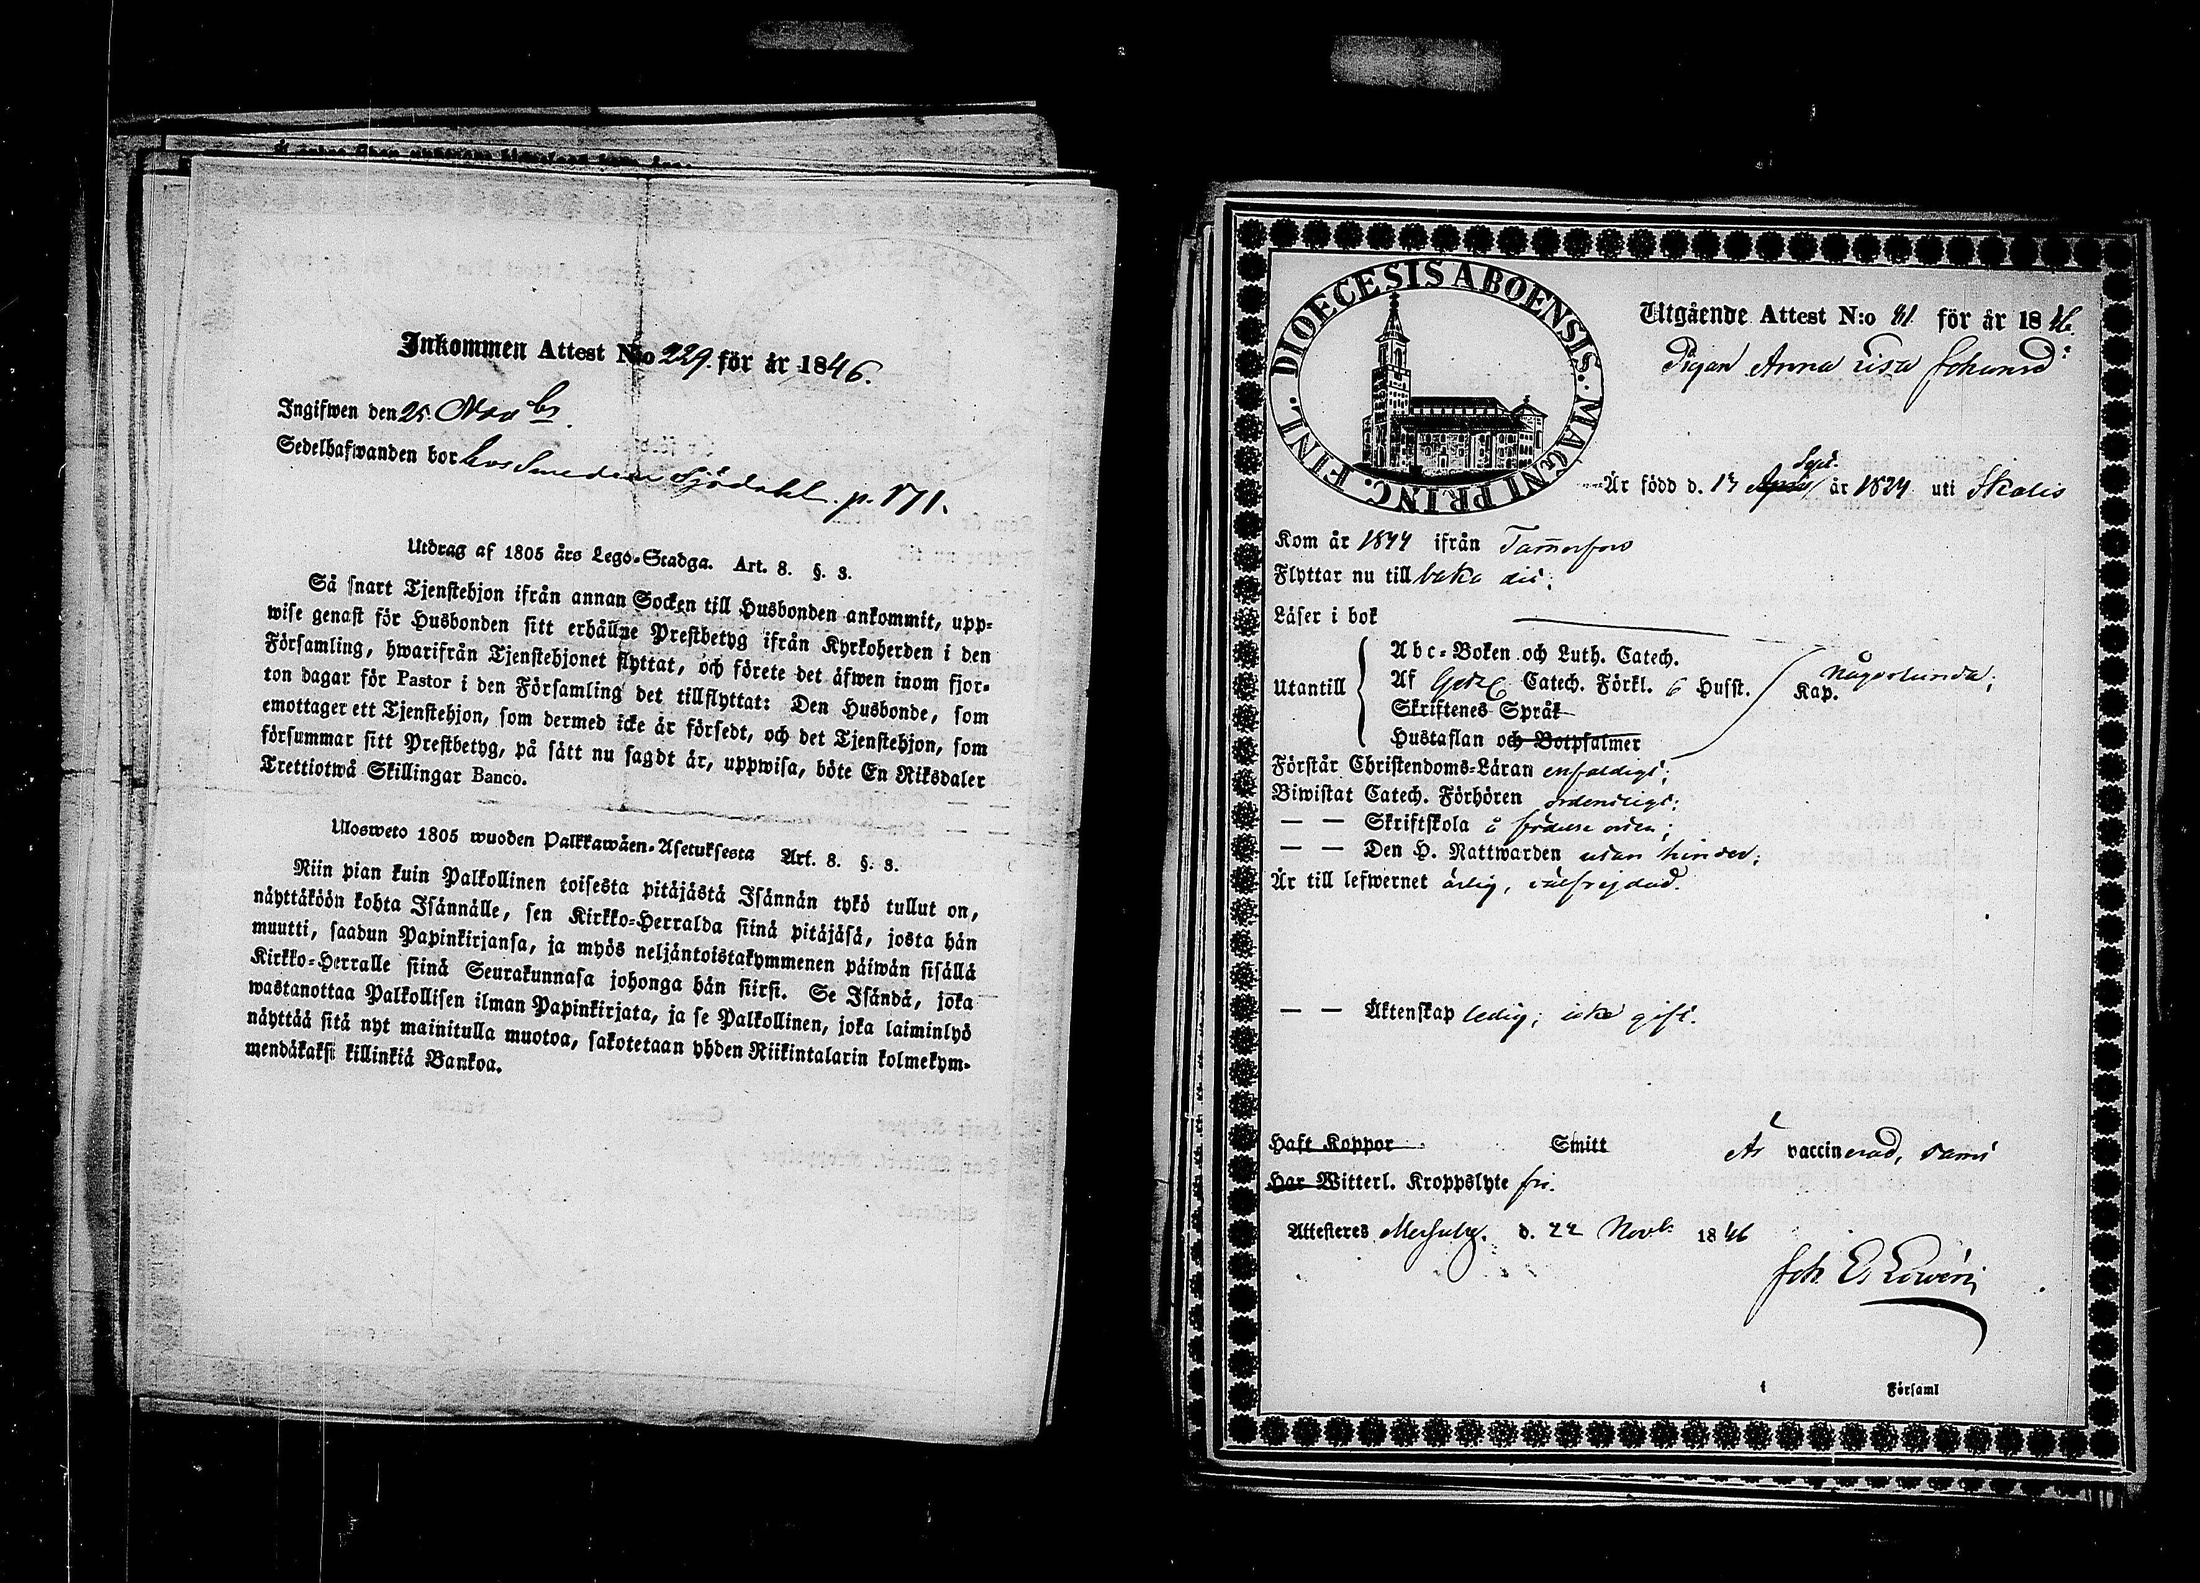 Inkommen Attest N:o 229. för år 1846.
Ingifwen den 25. Novbr.
Sedelhafwanden bor hos Smeden Sjödahl. p. 171.
Utdrag af 1805 års Lego-Stadga. Art. 8. §. 3.
Så snart Tjenstehjon ifrån annan Socken till Husbonden ankommit, upp-
wise genast för Husbonden sitt erhållne Prestbetyg ifrån Kyrkoherden i den
Församling, hwarifrån Tjenstehjonet flyttat, och förete det äfwen inom fjor-
ton dagar för Pastor i den Församling det tillflyttat: Den Husbonde, som
emottager ett Tjenstehjon, som dermed icke är försedt, och det Tjenstehjon, som
försummar sitt Prestbetyg, på sätt nu sagdt är, uppwisa, böte En Riksdaler
Trettiotwå Skillingar Banco.
Ulosweto 1805 wuoden Palkkawäen-Asetuksesta Art. 8. §. 3.
Niin pian kuin Palkollinen toisesta pitäjästä Isännän tykö tullut on,
näyttäköön kohta Isännälle, sen Kirkko-Herralda siinä pitäjäsä, josta hän
muutti, saadun Papinkirjansa, ja myös neljäntoistakymmenen päiwän sisällä
Kirkko-Herralle siinä Seurakunnasa johonga hän siirsi. Se Isändä, joka
wastanottaa Palkollisen ilman Papinkirjata, ja se Palkollinen, joka laiminlyö
näyttää sitä nyt mainitulla muotoa, sakotetaan yhden Riikintalarin kolmekym-
mendäkaksi killinkiä Bankoa.
DIOECESIS ABOENSIS. MAGNI PRINC. FINL.
Utgående Attest N:o 81 för år 1846.
Pigan Anna Lisa Johansd:
Sept.
Är född d. 13 April år 1824 uti Skalis
Kom år 1844 ifrån Tammerfors
Flyttar nu till baka dit;
Läser i bok
Abc-Boken och Luth. Catech.
Utantill Af Catech. Förkl. 6 Husst. Kap. någorlunda;
Skriftenes Språk
Hustaflan och Botpsalmer
Förstår Christendoms-Läran enfaldigt;
Biwistat Catech. Förhören ordentligt;
— — Skriftskola å födelse orten;
— — Den H. Nattwarden utan hinder;
Är till lefwernet ärlig, välfrejdad.
— — Äktenskap ledig; icke gift.
Haft Koppor Smitt Är vaccinerad, samt
Har Witterl. Kroppslyte fri.
Attesteres d. 22 Novb. 1846
Joh. E.
Församl